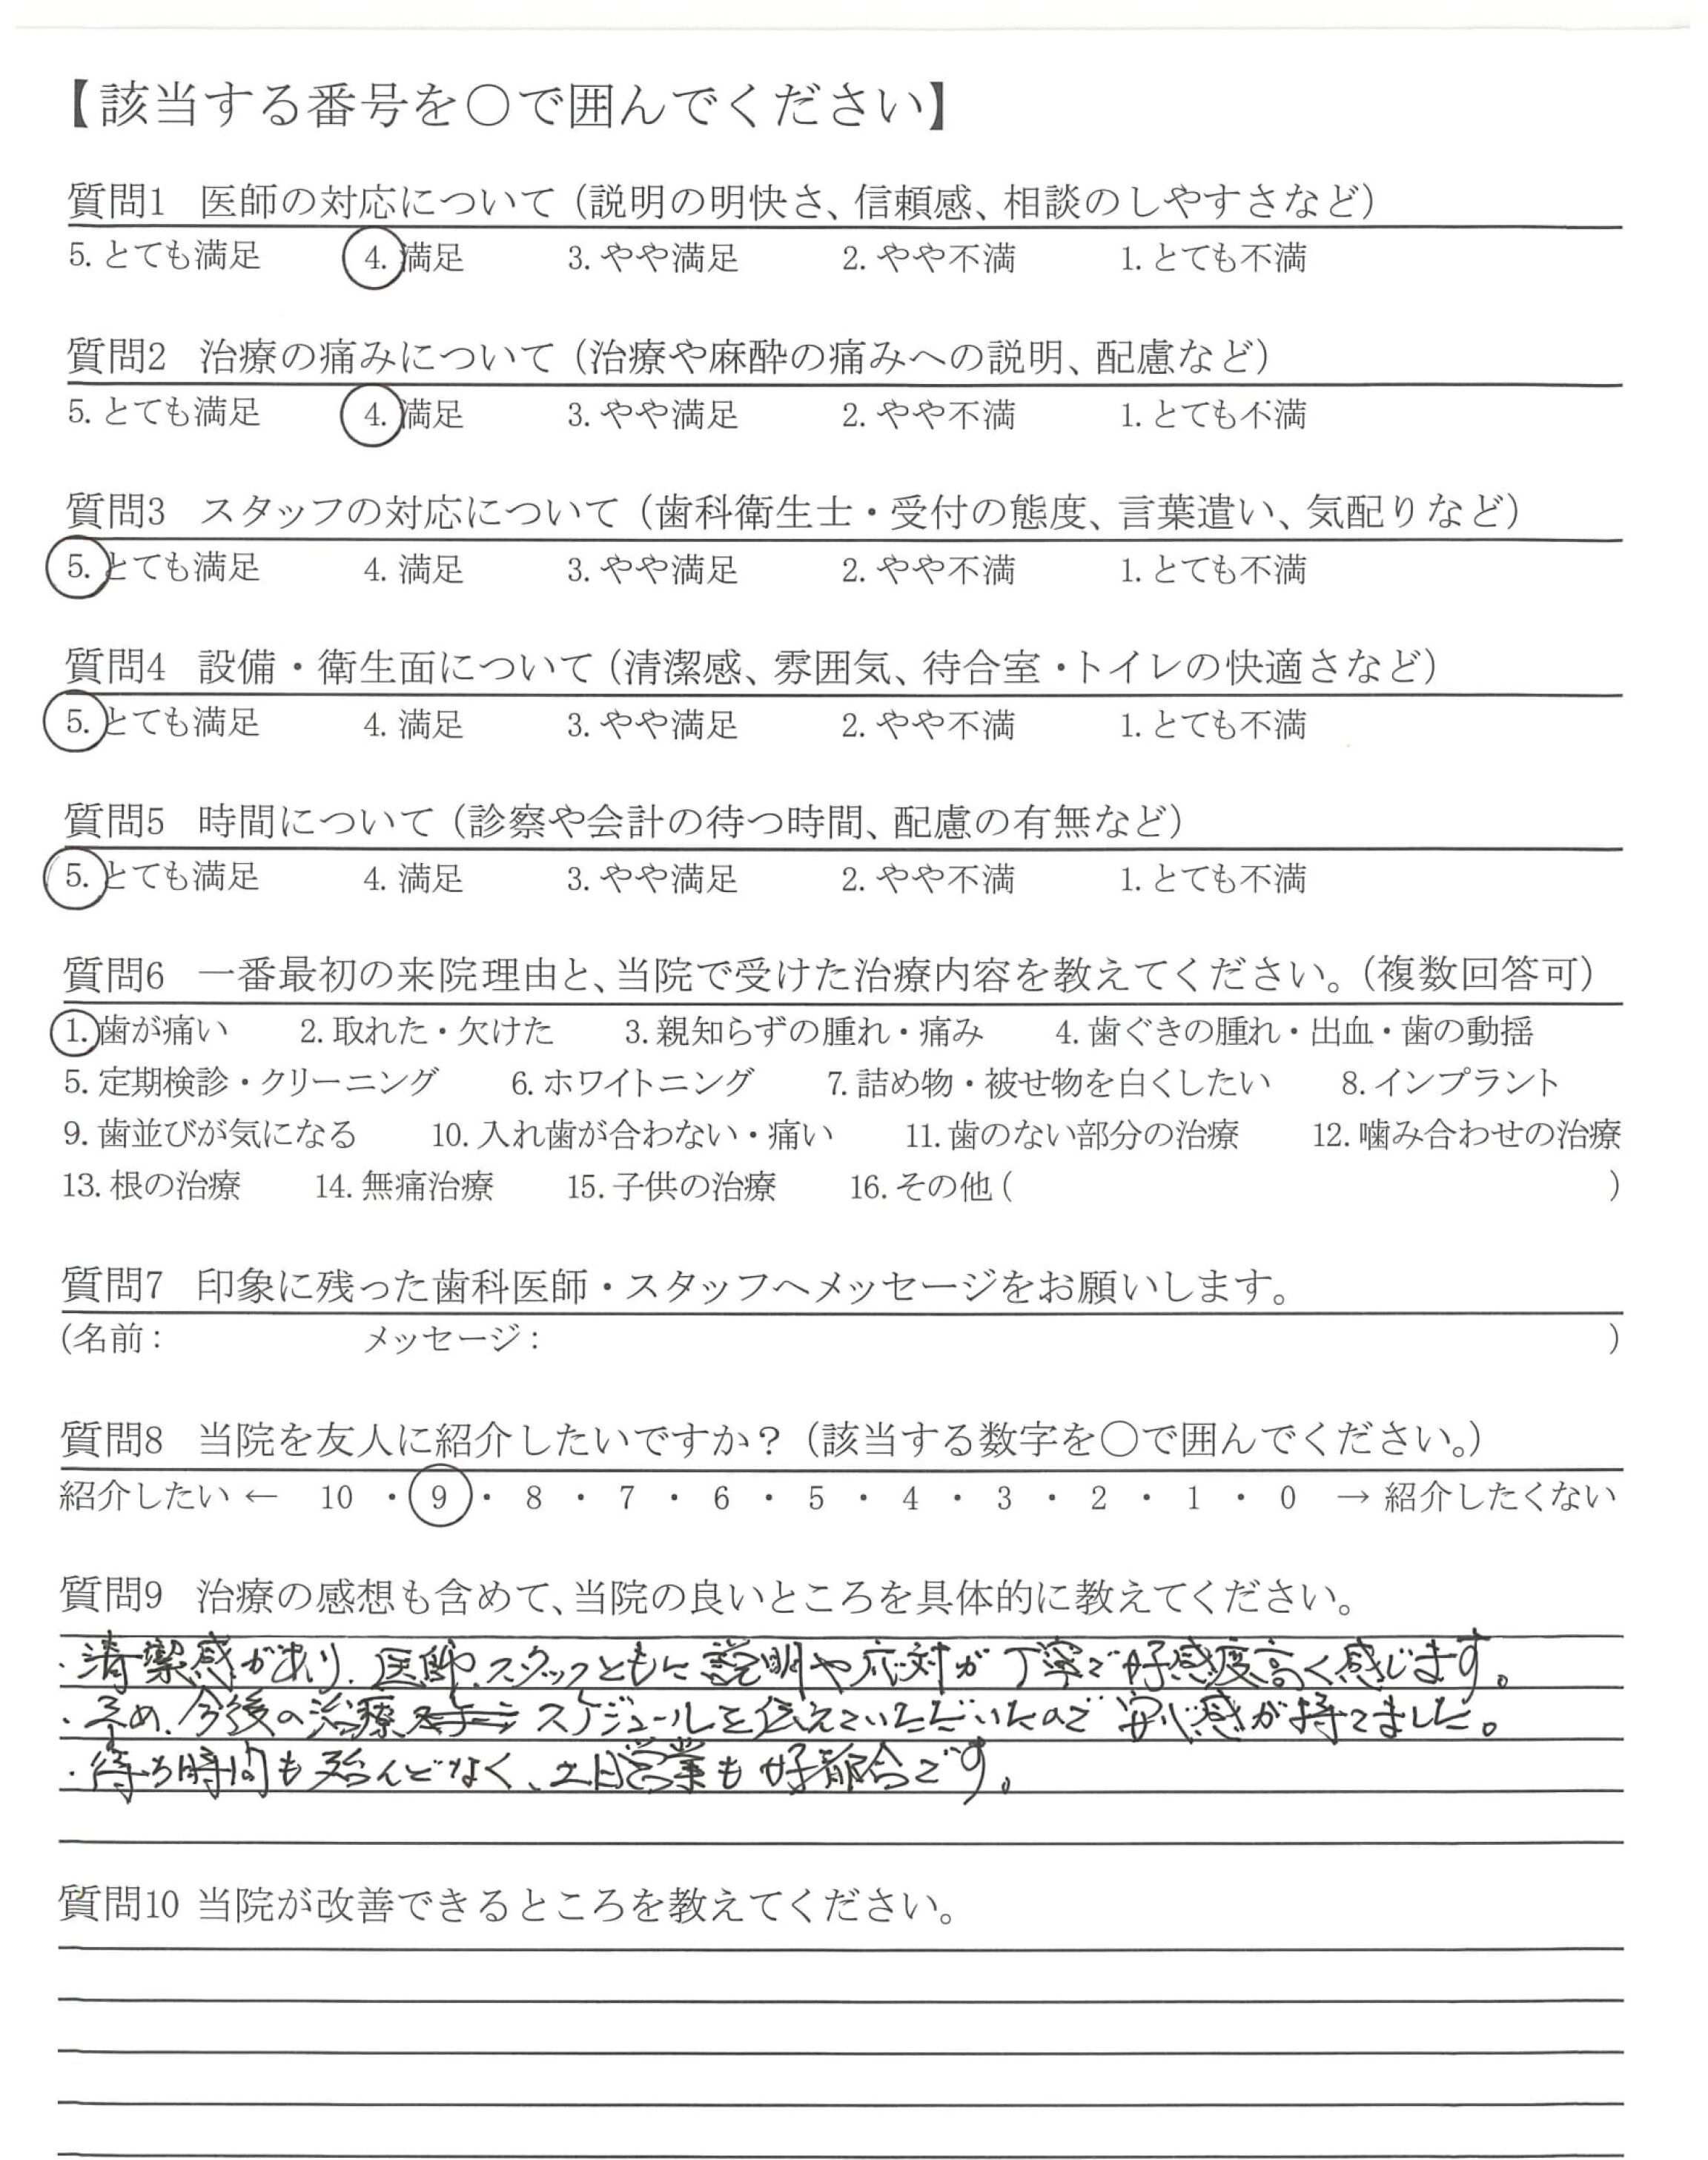 【該当する番号を○で囲んでください】
質問1 医師の対応について（説明の明快さ、信頼感、相談のしやすさなど）
5. とても満足 4. 満足 3. やや満足 2. やや不満 1. とても不満
質問2 治療の痛みについて（治療や麻酔の痛みへの説明、配慮など）
5. とても満足 4. 満足 3. やや満足 2. やや不満 1. とても不満
質問3 スタッフの対応について（歯科衛生士・受付の態度、言葉遣い、気配りなど）
5. とても満足 4. 満足 3. やや満足 2. やや不満 1. とても不満
質問4 設備・衛生面について（清潔感、雰囲気、待合室・トイレの快適さなど）
5. とても満足 4. 満足 3. やや満足 2. やや不満 1. とても不満
質問5 時間について（診察や会計の待つ時間、配慮の有無など）
5. とても満足 4. 満足 3. やや満足 2. やや不満 1. とても不満
質問6 一番最初の来院理由と、当院で受けた治療内容を教えてください。（複数回答可）
1. 歯が痛い 2. 取れた・欠けた 3. 親知らずの腫れ・痛み 4. 歯ぐきの腫れ・出血・歯の動揺
5. 定期検診・クリーニング 6. ホワイトニング 7. 詰め物・被せ物を白くしたい 8. インプラント
9. 歯並びが気になる 10. 入れ歯が合わない・痛い 11. 歯のない部分の治療 12. 噛み合わせの治療
13. 根の治療 14. 無痛治療 15. 子供の治療 16. その他（ ）
質問7 印象に残った歯科医師・スタッフへメッセージをお願いします。
（名前： メッセージ： ）
質問8 当院を友人に紹介したいですか？（該当する数字を○で囲んでください。）
紹介したい ← 10 ・ 9 ・ 8 ・ 7 ・ 6 ・ 5 ・ 4 ・ 3 ・ 2 ・ 1 ・ 0 → 紹介したくない
質問9 治療の感想も含めて、当院の良いところを具体的に教えてください。
・清潔感があり、医師、スタッフともに説明や応対が丁寧で好感度高く感じます。
・予め、今後の治療スケジュールを伝えていただいたので安心感が持てました。
・待ち時間も殆んどなく、土日営業も好都合です。
質問10 当院が改善できるところを教えてください。